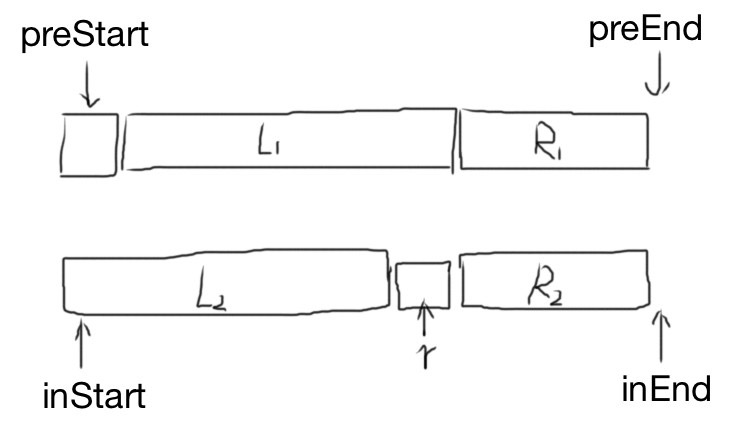 preStart preEnd
L₁ R₁
L₂ R₂
r
inStart inEnd